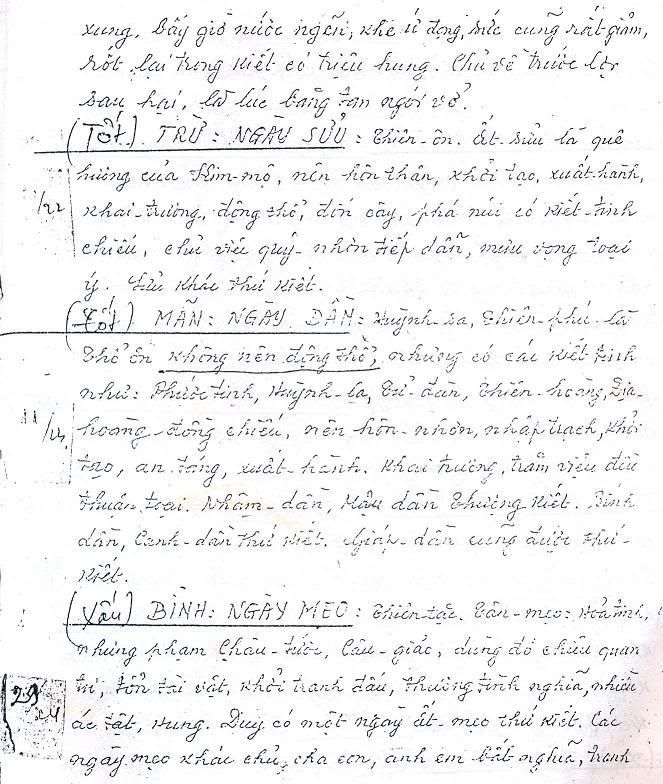 xung. Bấy giờ nước ngễn, khe ứ đọng, sức cung rất giảm,
rốt lại trong kiết có triệu hung. Chủ về trước lợi
sau hại, là lúc băng tan ngói vở.
(Tốt) TRỪ: NGÀY SỬU: Thiên-ôn. Ất-sửu là quê
hương của Kim-mộ, nên hôn thân, khởi tạo, xuất-hành,
khai-trương, động thổ, đốn cây, phá núi có kiết-tinh
chiếu, chủ việc quý-nhơn tiếp dẫn, mưu vọng toại
ý. Sửu khác thứ kiết.
(Tốt) MÃN: NGÀY DẦN: Huỳnh-sa, Thiên-phú là
Thổ ôn không nên động thổ, nhưng có các kiết tinh
như: Phước tinh, Huỳnh-la, Tử-đàn, Thiên-hoàng, Địa-
hoàng-đồng chiếu, nên hôn-nhơn, nhập trạch, khởi
tạo, an táng, xuất-hành. Khai trương, trăm việc đều
thuận toại. Nhâm-dần, Mậu dần thượng kiết. Bính
dần, Canh-dần thứ kiết. Giáp-dần cung được thứ-
kiết.
(Xấu) BÌNH: NGÀY MẸO: Thiên-tặc. Tân-mẹo: Hỏa tinh,
nhưng phạm Châu-tước, Câu-giác, dùng đó chiêu quan
tai, tổn tài vật, khởi tranh đấu, thương tình nghĩa, nhiều
ác tật, hung. Duy có một ngày ất-mẹo thứ kiết. Các
ngày mẹo khác chủ, cha con, anh em bất nghĩa, tranh
11/22
11/23
29
24